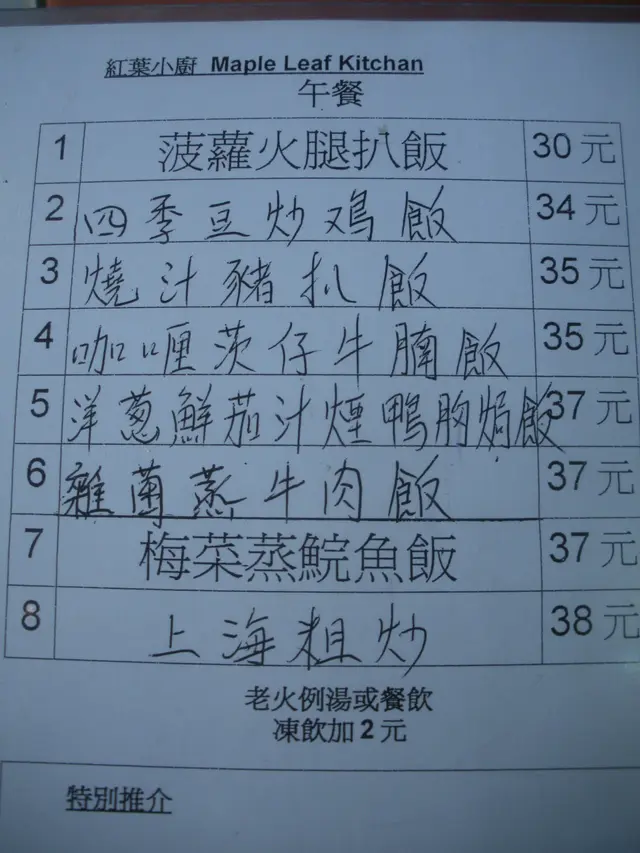 紅葉小廚 Maple Leaf Kitchan
午餐
1 菠蘿火腿扒飯 30 元
2 四季豆炒鸡飯 34 元
3 燒汁豬扒飯 35 元
4 咖喱茨仔牛腩飯 35 元
5 洋葱鮮茄汁煙鴨胸焗飯 37 元
6 雜菌蒸牛肉飯 37 元
7 梅菜蒸鯇魚飯 37 元
8 上海粗炒 38 元
老火例湯或餐飲
凍飲加 2 元
特別推介